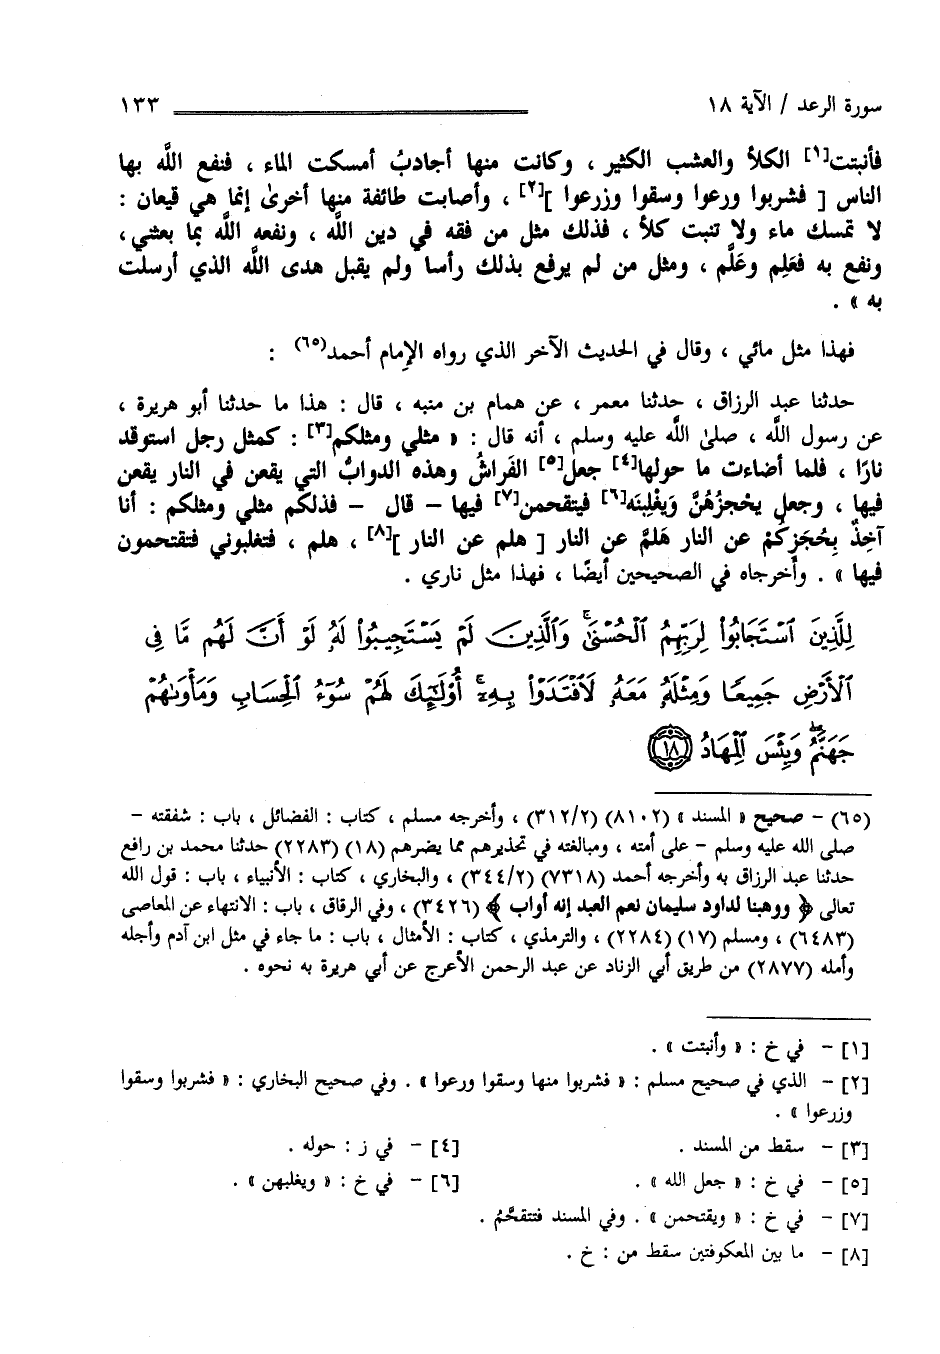 سورة الرعد / الآية ١٨ ١٣٣
فأنبتت[١] الكلأ والعشب الكثير ، وكانت منها أجادبُ أمسكت الماء ، فنفع اللَّه بها
الناس [ فشربوا ورعوا وسقوا وزرعوا ][٢] ، وأصابت طائفة منها أخرىٰ إنما هي قيعان :
لا تمسك ماء ولا تنبت كلأ ، فذلك مثل من فقه في دين اللَّه ، ونفعه اللَّه بما بعثني ،
ونفع به فعَلِم وعَلَّم ، ومثل من لم يرفع بذلك رأسا ولم يقبل هدى اللَّه الذي أرسلت
به » .
فهذا مثل مائي ، وقال في الحديث الآخر الذي رواه الإمام أحمد(٦٥) :
حدثنا عبد الرزاق ، حدثنا معمر ، عن همام بن منبه ، قال : هذا ما حدثنا أبو هريرة ،
عن رسول اللَّه ، صلىٰ اللَّه عليه وسلم ، أنه قال : « مثلي ومثلكم[٣] : كمثل رجل استوقد
نارًا ، فلما أضاءت ما حولها[٤] جعل[٥] الفَراشُ وهذه الدوابُّ التي يقعن في النار يقعن
فيها ، وجعل يحْجزُهُنَّ وَيغْلِبنَه[٦] فيتقحمن[٧] فيها – قال – فذلكم مثلي ومثلكم : أنا
آخِذٌ بِحُجَزِكُمْ عن النار هَلمَّ عن النار [ هلم عن النار ][٨] ، هلم ، فتغلبوني فتقتحمون
فيها » . وأخرجاه في الصحيحين أيضًا ، فهذا مثل ناري .
لِلَّذِينَ ٱسْتَجَابُوا۟ لِرَبِّهِمُ ٱلْحُسْنَىٰ ۚ وَٱلَّذِينَ لَمْ يَسْتَجِيبُوا۟ لَهُۥ لَوْ أَنَّ لَهُم مَّا فِى
ٱلْأَرْضِ جَمِيعًا وَمِثْلَهُۥ مَعَهُۥ لَٱفْتَدَوْا۟ بِهِۦٓ ۚ أُو۟لَـٰٓئِكَ لَهُمْ سُوٓءُ ٱلْحِسَابِ وَمَأْوَىٰهُمْ
جَهَنَّمُ ۖ وَبِئْسَ ٱلْمِهَادُ ١٨
(٦٥) – صحيح « المسند » (٨١٠٢) (٣١٢/٢) ، وأخرجه مسلم ، كتاب : الفضائل ، باب : شفقته –
صلى الله عليه وسلم – على أمته ، ومبالغته في تحذيرهم مما يضرهم (١٨) (٢٢٨٣) حدثنا محمد بن رافع
حدثنا عبد الرزاق به وأخرجه أحمد (٧٣١٨) (٣٤٤/٢) ، والبخاري ، كتاب : الأنبياء ، باب : قول الله
تعالى ﴿ ووهبنا لداود سليمان نعم العبد إنه أواب ﴾ (٣٤٢٦) ، وفي الرقاق ، باب : الانتهاء عن المعاصى
(٦٤٨٣) ، ومسلم (١٧) (٢٢٨٤) ، والترمذي ، كتاب : الأمثال ، باب : ما جاء في مثل ابن آدم وأجله
وأمله (٢٨٧٧) من طريق أبي الزناد عن عبد الرحمن الأعرج عن أبي هريرة به نحوه .
[١] – في خ : « وأنبتت » .
[٢] – الذي في صحيح مسلم : « فشربوا منها وسقوا ورعوا » . وفي صحيح البخاري : « فشربوا وسقوا
وزرعوا » .
[٣] – سقط من المسند . [٤] – في ز : حوله .
[٥] – في خ : « جعل الله » . [٦] – في خ : « ويغلبهن » .
[٧] – في خ : « ويقتحمن » . وفي المسند فتتقحَّمُ .
[٨] – ما بين المعكوفتين سقط من : خ .